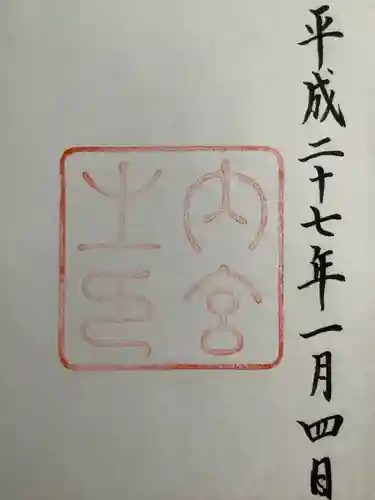 平成二十七年一月四日
内宮
之印